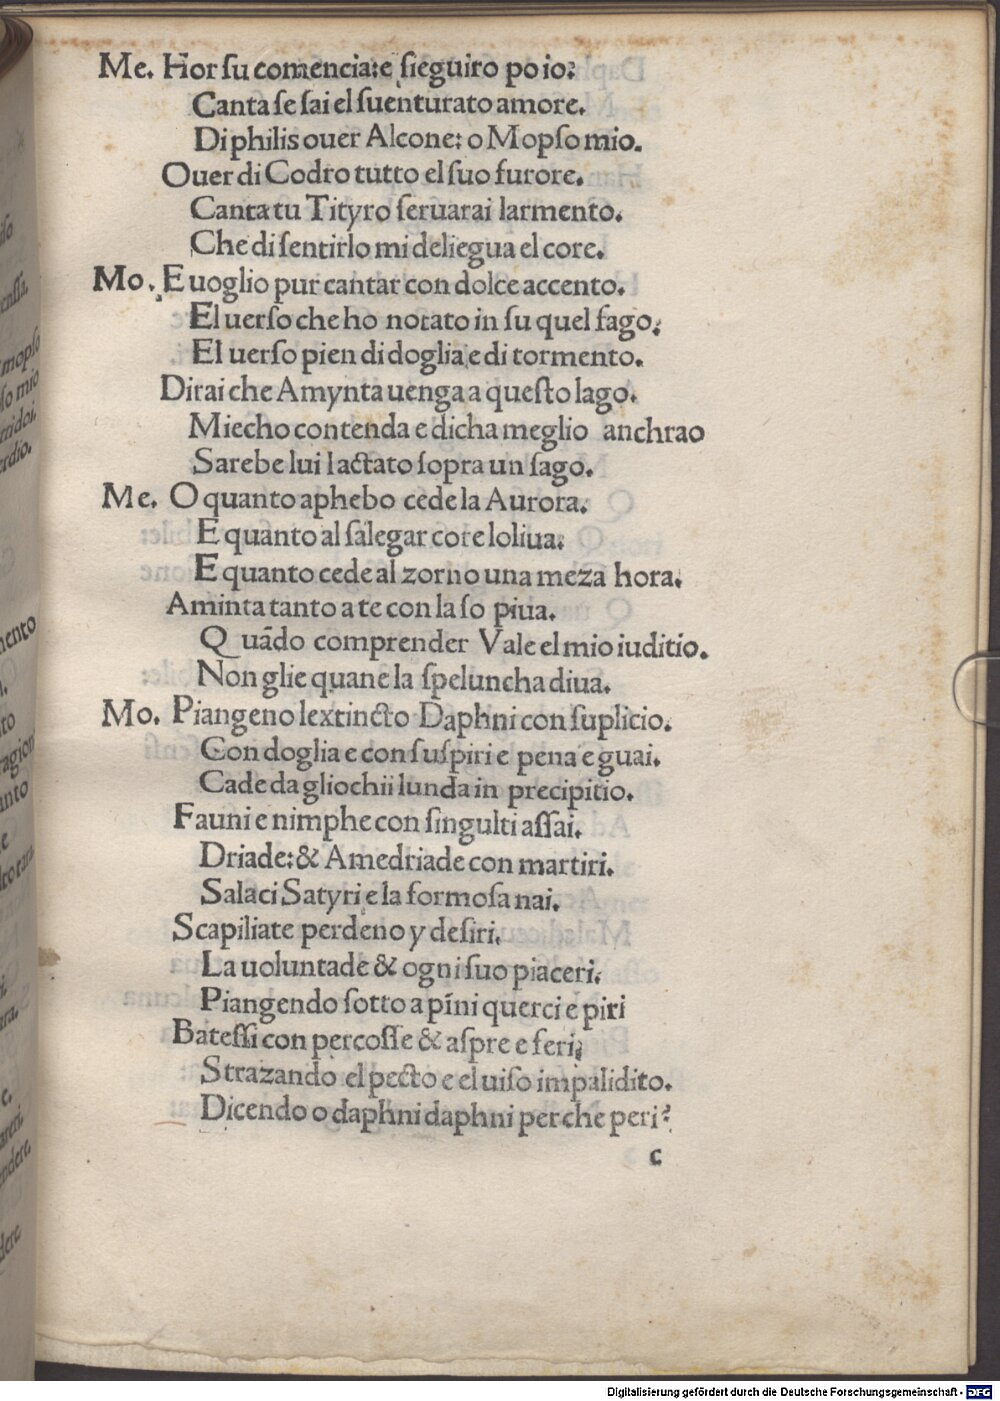 Me. Hor ſu comenciate ſieguiro po io:
Canta ſe ſai el ſuenturato amore.
Di philis ouer Alcone: o Mopſo mio.
Ouer di Codro tutto el ſuo furore.
Canta tu Tityro ſeruarai larmento.
Che di ſentirlo mi deliegua el core.
Mo. E uoglio pur cantar con dolce accento.
El uerſo che ho notato in ſu quel fago.
El uerſo pien di doglia e di tormento.
Dirai che Amynta uenga a queſto lago.
Miecho contenda e dicha meglio anchrao
Sarebe lui lactato ſopra un ſago.
Me. O quanto a phebo cede la Aurora.
E quanto al ſalegar cote loliua:
E quanto cede al zorno una meza hora.
Aminta tanto a te con la ſo piua.
Quãdo comprender Vale el mio iuditio.
Non glie quane la ſpeluncha diua.
Mo. Piangeno lextincto Daphni con ſuplicio.
Con doglia e con ſuſpiri e pena e guai.
Cade da gliochii lunda in precipitio.
Fauni e nimphe con ſingulti aſſai.
Driade: & Amedriade con martiri.
Salaci Satyri e la formoſa nai.
Scapiliate perdeno y deſiri.
La uoluntade & ogni ſuo piaceri.
Piangendo ſotto a pĩni querci e piri
Bateſſi con percoſſe & aſpre e feri;
Strazando el pecto e el uiſo impalidito.
Dicendo o daphni daphni per che peri?
c
Digitalisierung gefördert durch die Deutsche Forschungsgemeinschaft - DFG